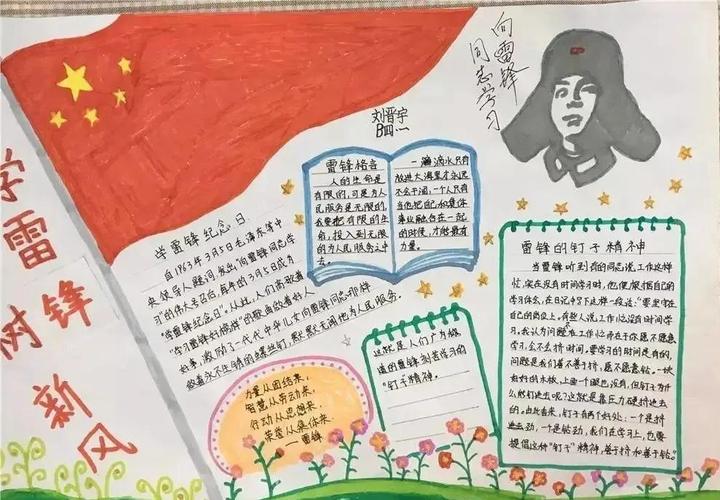 学雷锋
树新风
向雷锋
同志学习
刘晋宇
雷锋格言
人的生命是
有限的,可是为人
民服务是无限的,
我要把有限的生
命,投入到无限
的为人民服务之中
去。
一滴水只有
放进大海里才永远
不会干涸,一个人只有
当他把自己和集体
事业融合在一起
的时候,才能最有
力量。
学雷锋纪念日
自1963年3月5日毛泽东等中
央领导人题词,发出"向雷锋同志学
习"的伟大号召后,每年的3月5日成为
"学雷锋纪念日"。从此,人们高歌着
"学习雷锋好榜样"的歌曲做着好人
好事,激励了一代代中华儿女向雷锋同志那样
做着永不生锈的螺丝钉,默默无闻地为人民服务。
力量从团结来,
智慧从劳动来,
行动从思想来,
荣誉从集体来。
—雷锋
这就是人们广为
道的雷锋刻苦学习的
"钉子"精神。
雷锋的钉子精神
当雷锋听到有的同志说工作这样
忙,实在没有时间学习时,他便根据自己的
学习体会,在日记中写下这样一段话:"要坚守在
自己的岗位上。有些人说工作忙没有时间学
习,我认为问题不在工作忙而在于你愿不愿意
学习,会不会挤时间。要学习的时间是有的,
问题是我们善不善于挤,愿不愿意钻。一块
好好的木板,上面一个眼也没有,但钉子为什
么能钉进去呢?这就是靠压力硬挤进去
的。由此看来,钉子有两个好处:一个是挤
进去劲,一个是钻劲,我们在学习上,也要
提倡这种"钉子"精神,善于挤和善于钻。"